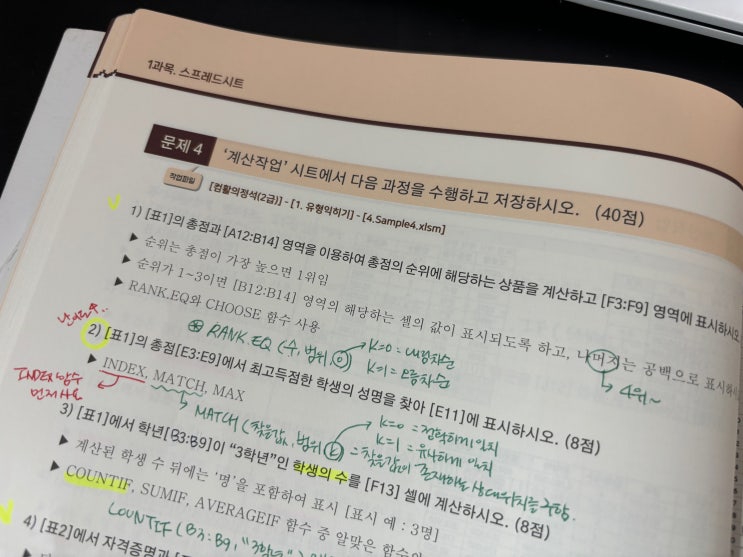 1과목. 스프레드시트
문제 4 '계산작업' 시트에서 다음 과정을 수행하고 저장하시오. (40점)
작업파일 [컴활의정석(2급)] - [1. 유형익히기] - [4.Sample4.xlsm]
1) [표1]의 총점과 [A12:B14] 영역을 이용하여 총점의 순위에 해당하는 상품을 계산하고 [F3:F9] 영역에 표시하시오
▶ 순위는 총점이 가장 높으면 1위임
▶ 순위가 1~3이면 [B12:B14] 영역의 해당하는 셀의 값이 표시되도록 하고, 나머지는 공백으로 표시하시
4위~
▶ RANK.EQ와 CHOOSE 함수 사용
⊕ RANK.EQ (수, 범위, 0) k=0 = 내림차순
k=1 = 오름차순
2) [표1]의 총점[E3:E9]에서 최고득점한 학생의 성명을 찾아 [E11]에 표시하시오. (8점)
▶ INDEX, MATCH, MAX
INDEX 함수
먼저사용
MATCH (찾을값, 범위, k) = 찾을값이 존재하는 상대위치를 구함.
k=0 = 정확하게 일치
k=1 = 유사하게 일치
3) [표1]에서 학년[B3:B9]이 "3학년"인 학생의 수를 [F13] 셀에 계산하시오. (8점)
▶ 계산된 학생 수 뒤에는 '명'을 포함하여 표시 [표시 예 : 3명]
▶ COUNTIF, SUMIF, AVERAGEIF 함수 중 알맞은 함수와
COUNTIF (B3:B9, "3학년")
4) [표2]에서 자격증명과